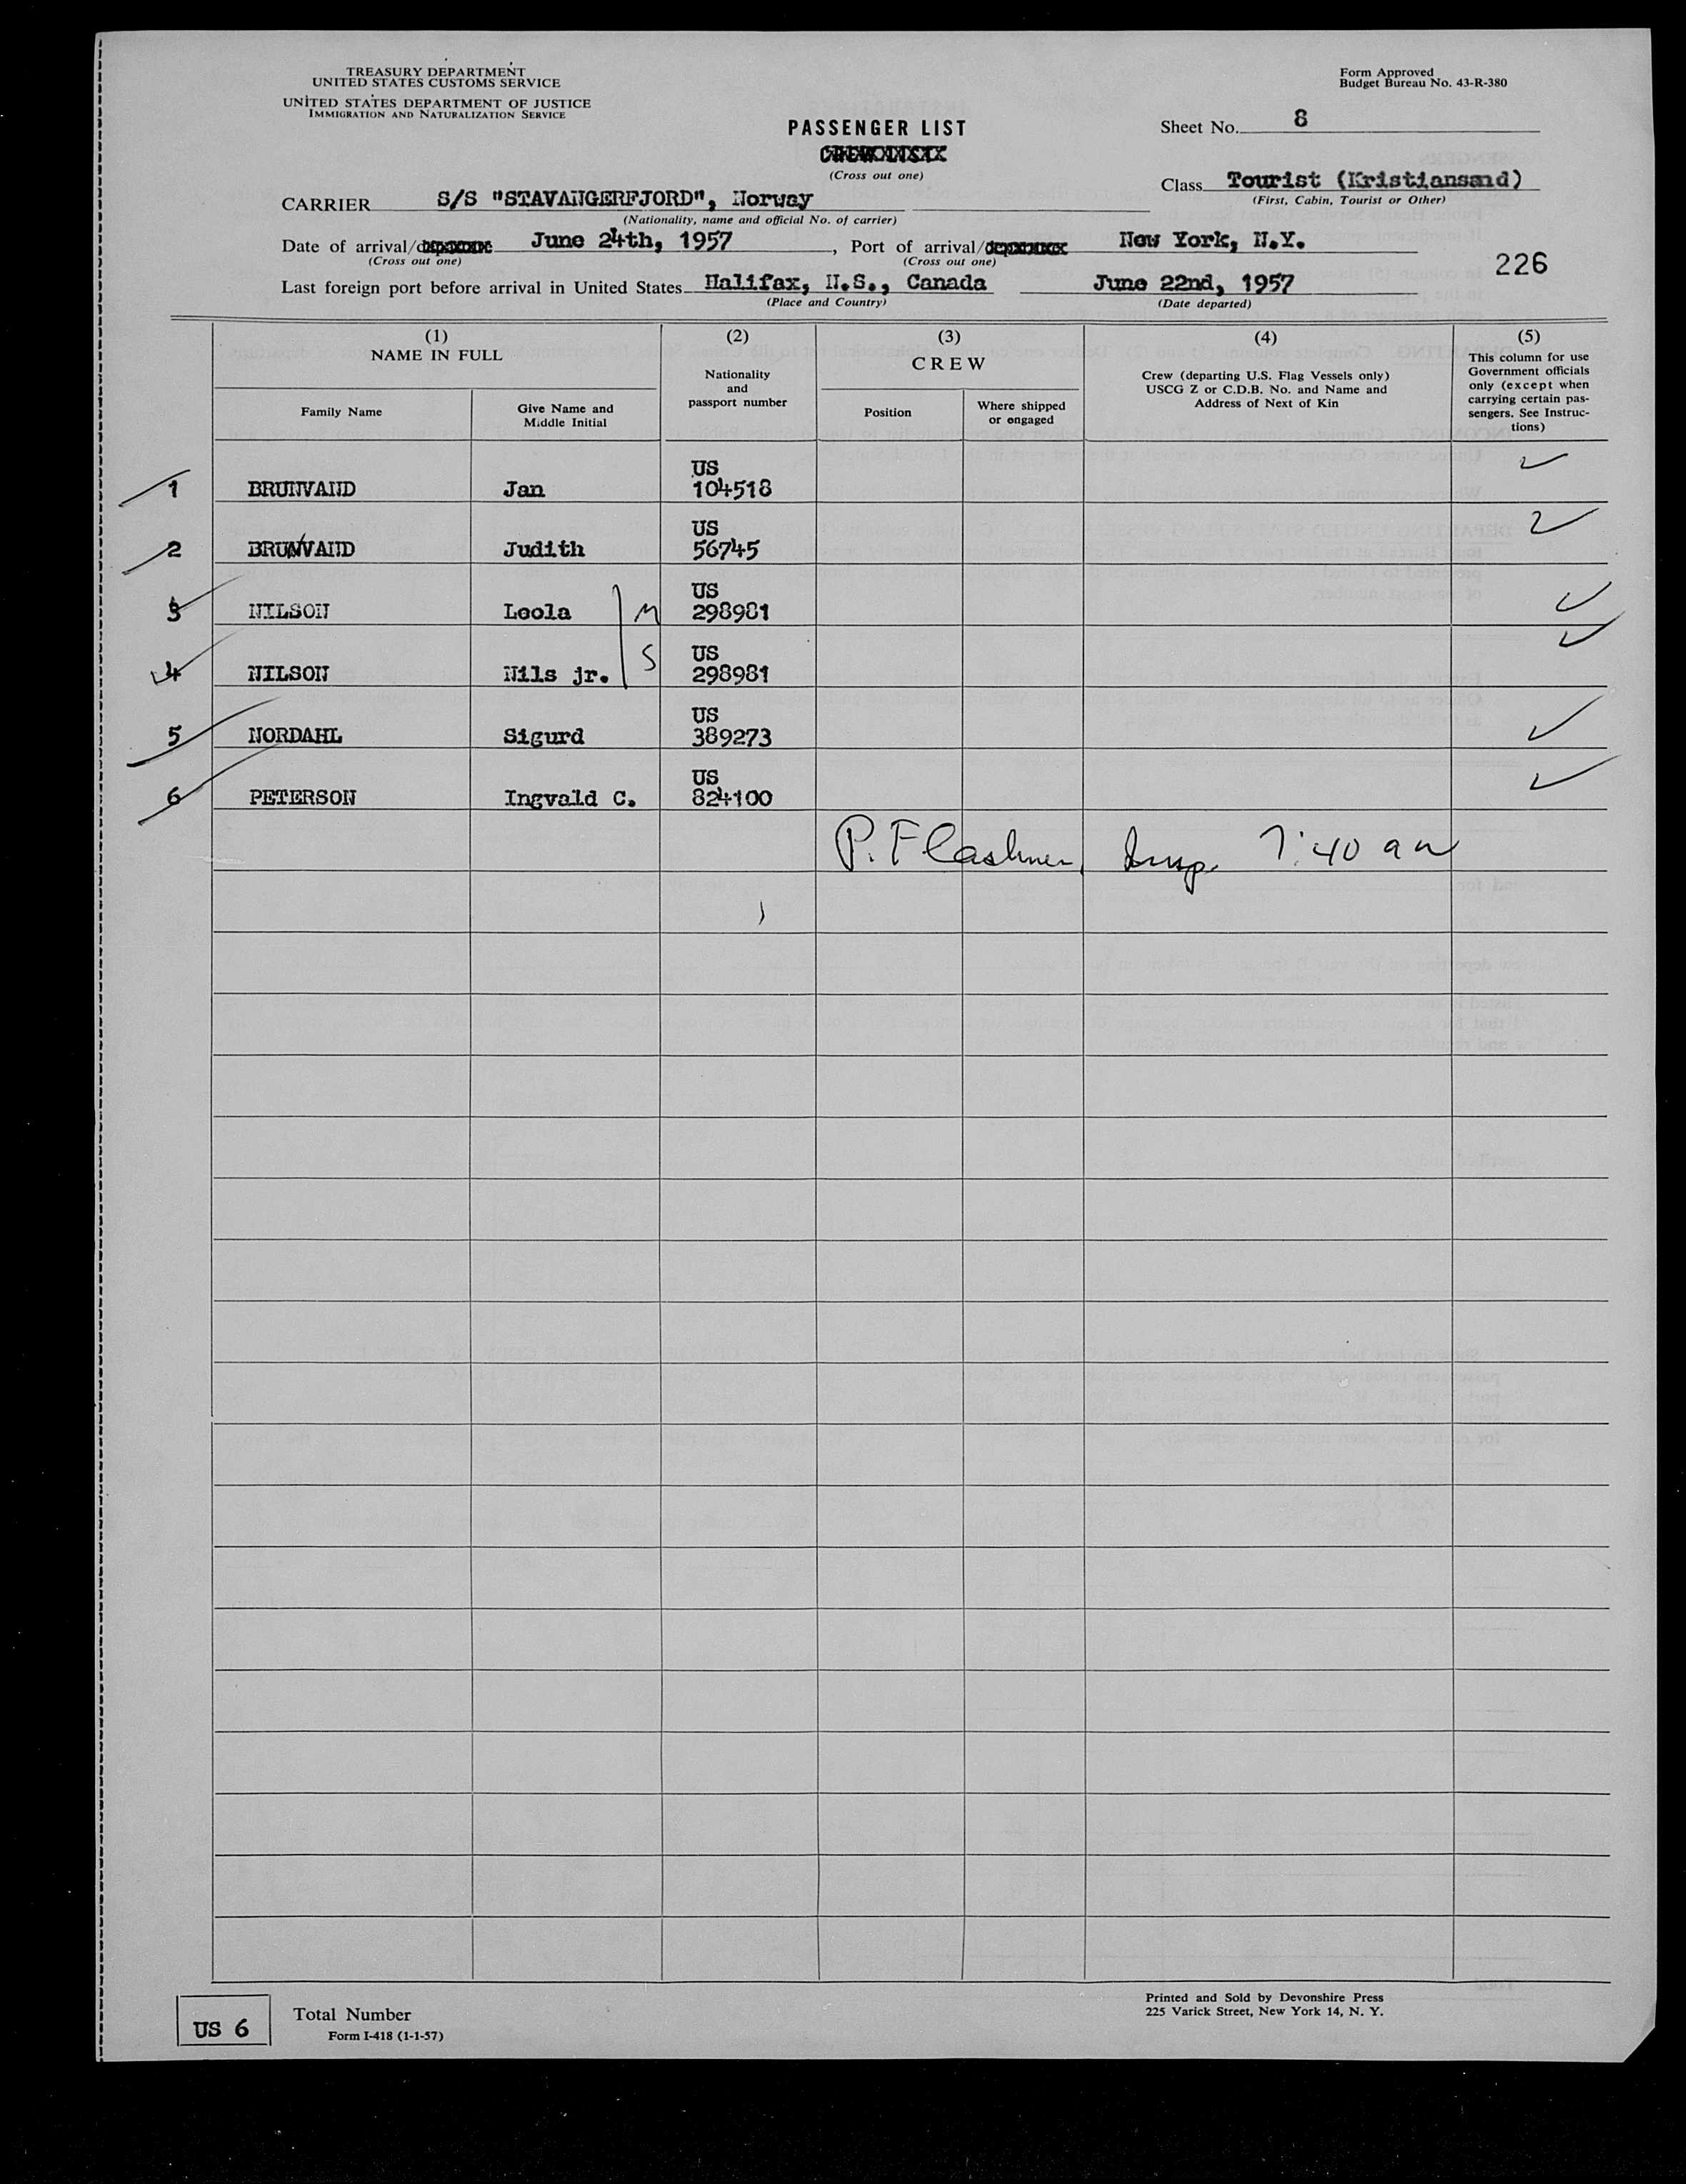 TREASURY DEPARTMENT
UNITED STATES CUSTOMS SERVICE
UNITED STATES DEPARTMENT OF JUSTICE
IMMIGRATION AND NATURALIZATION SERVICE
Form Approved
Budget Bureau No. 43-R-380
PASSENGER LIST
(Cross out one)
Sheet No. 8
Class Tourist (Kristiansand)
(First, Cabin, Tourist or Other)
CARRIER S/S "STAVANGERFJORD", Norway
(Nationality, name and official No. of carrier)
Date of arrival/ June 24th, 1957, Port of arrival/ New York, N.Y.
(Cross out one) (Cross out one)
226
Last foreign port before arrival in United States Halifax, N.S., Canada June 22nd, 1957
(Place and Country) (Date departed)
(1) NAME IN FULL
Family Name
Give Name and Middle Initial
(2) Nationality and passport number
(3) CREW
Position
Where shipped or engaged
(4) Crew (departing U.S. Flag Vessels only)
USCG Z or C.D.B. No. and Name and
Address of Next of Kin
(5) This column for use
Government officials
only (except when
carrying certain pas-
sengers. See Instruc-
tions)
1 BRUNVAND Jan US 104518
2 BRUNVAND Judith US 56745
3 NILSON Leola M US 298981
4 NILSON Nils jr. S US 298981
5 NORDAHL Sigurd US 389273
6 PETERSON Ingvald C. US 824100
P. Flashner, Insp. 7:40 am
US 6
Total Number
Form I-418 (1-1-57)
Printed and Sold by Devonshire Press
225 Varick Street, New York 14, N. Y.